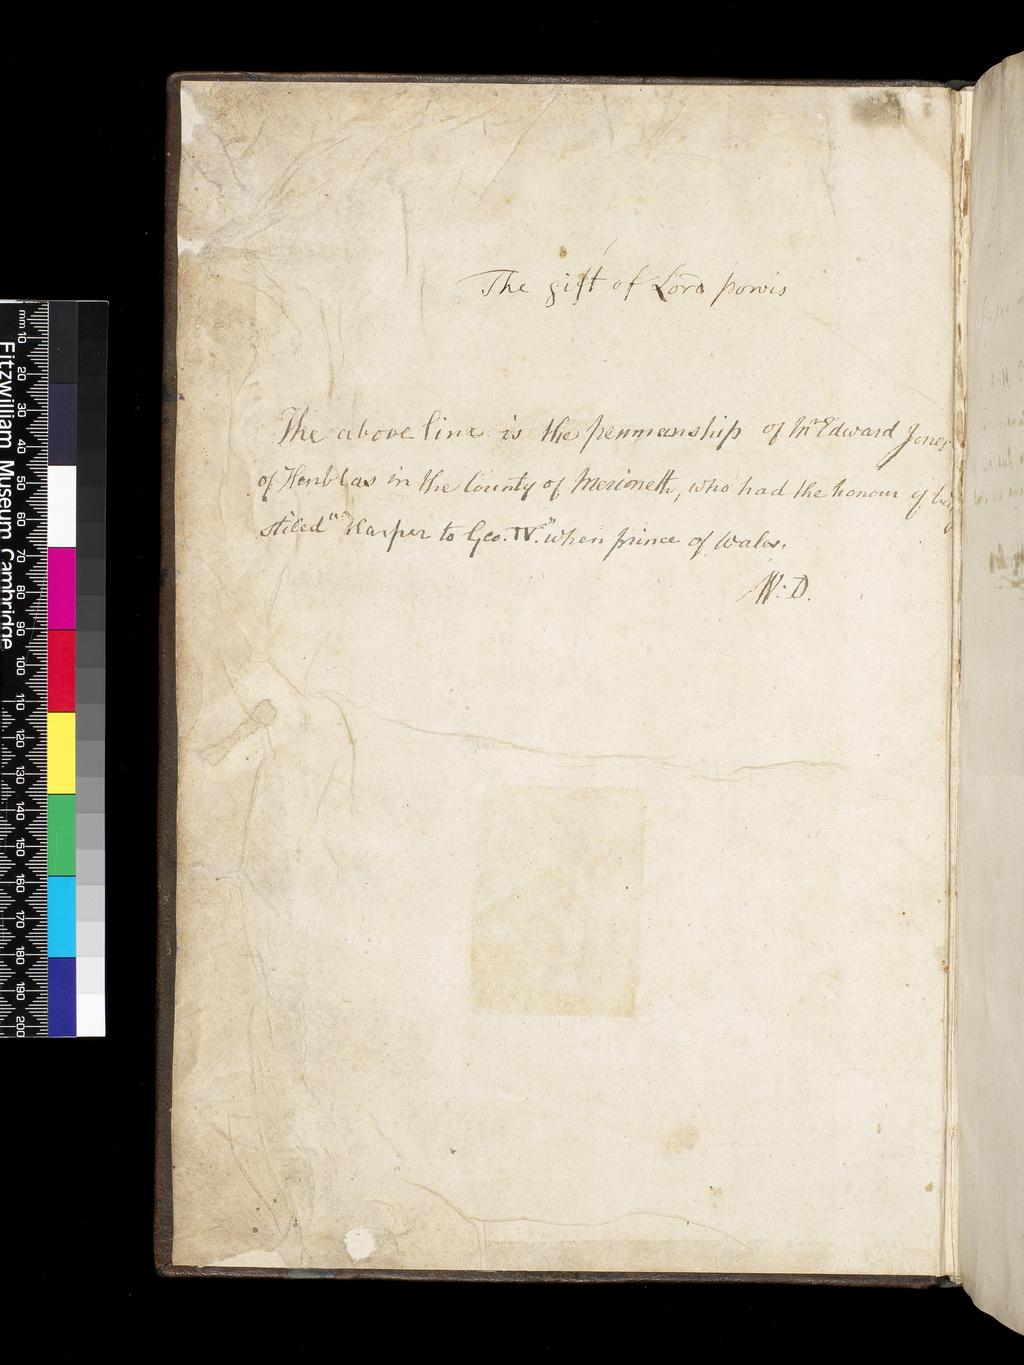 The gift of Lord powis
The above line is the penmanship of Mr Edward Jones
of Henblas in the County of Merioneth, who had the honour of being
stiled "Harper to Geo. IV." when prince of Wales.
W: D.
Fitzwilliam Museum Cambridge
mm 10 20 30 40 50 60 70 80 90 100 110 120 130 140 150 160 170 180 190 200